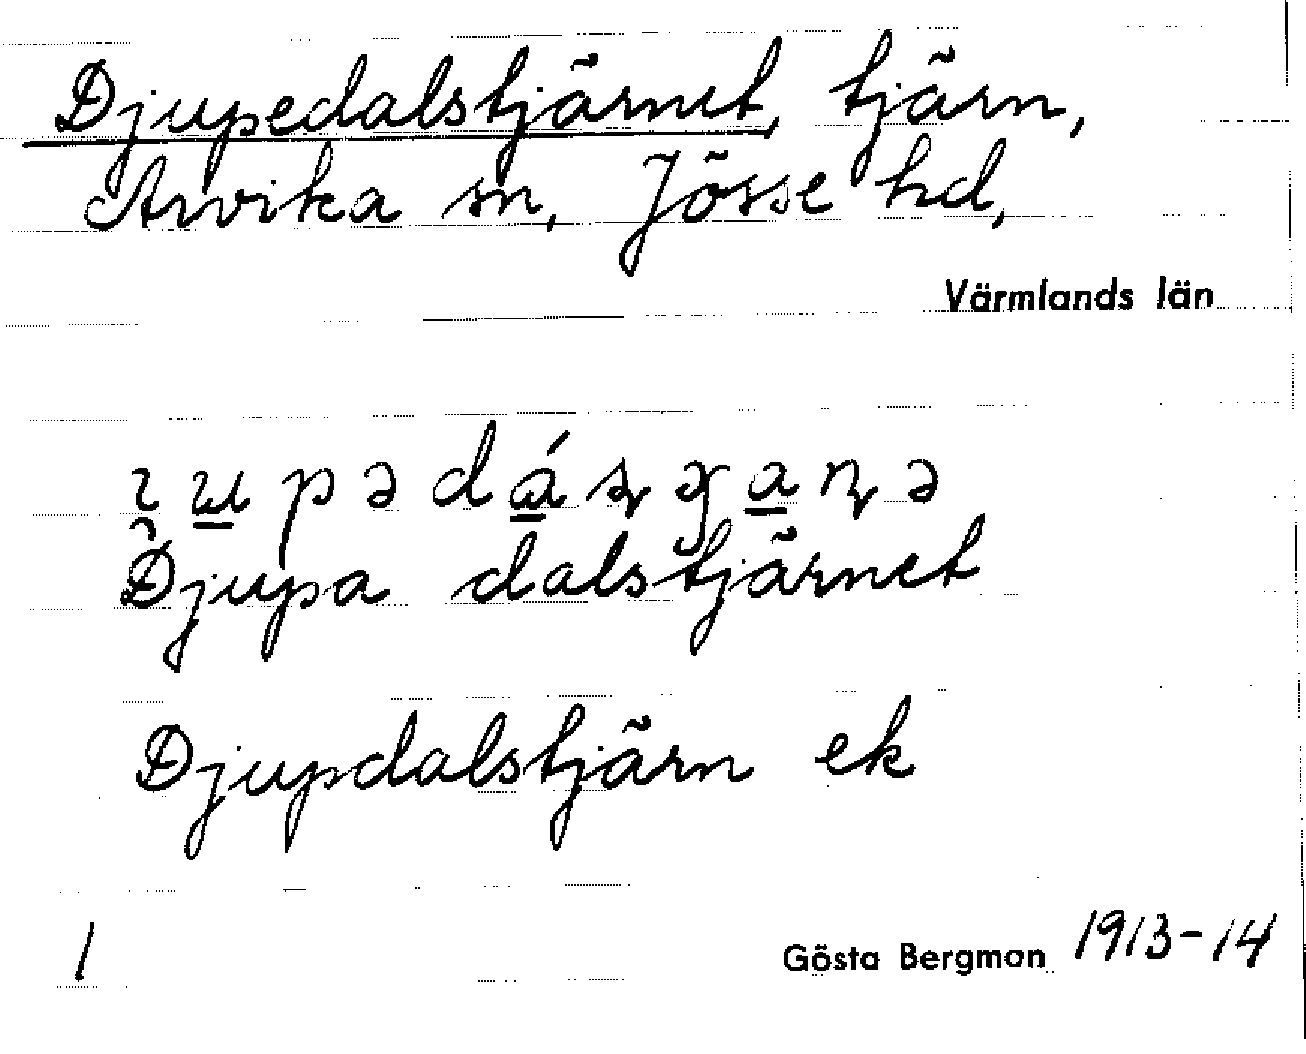 Djupedalstjärnet, tjärn,
Arvika sn, Jösse hd,
Värmlands län
Djupa dalstjärnet
Djupdalstjärn ek
1
Gösta Bergman 1913-14